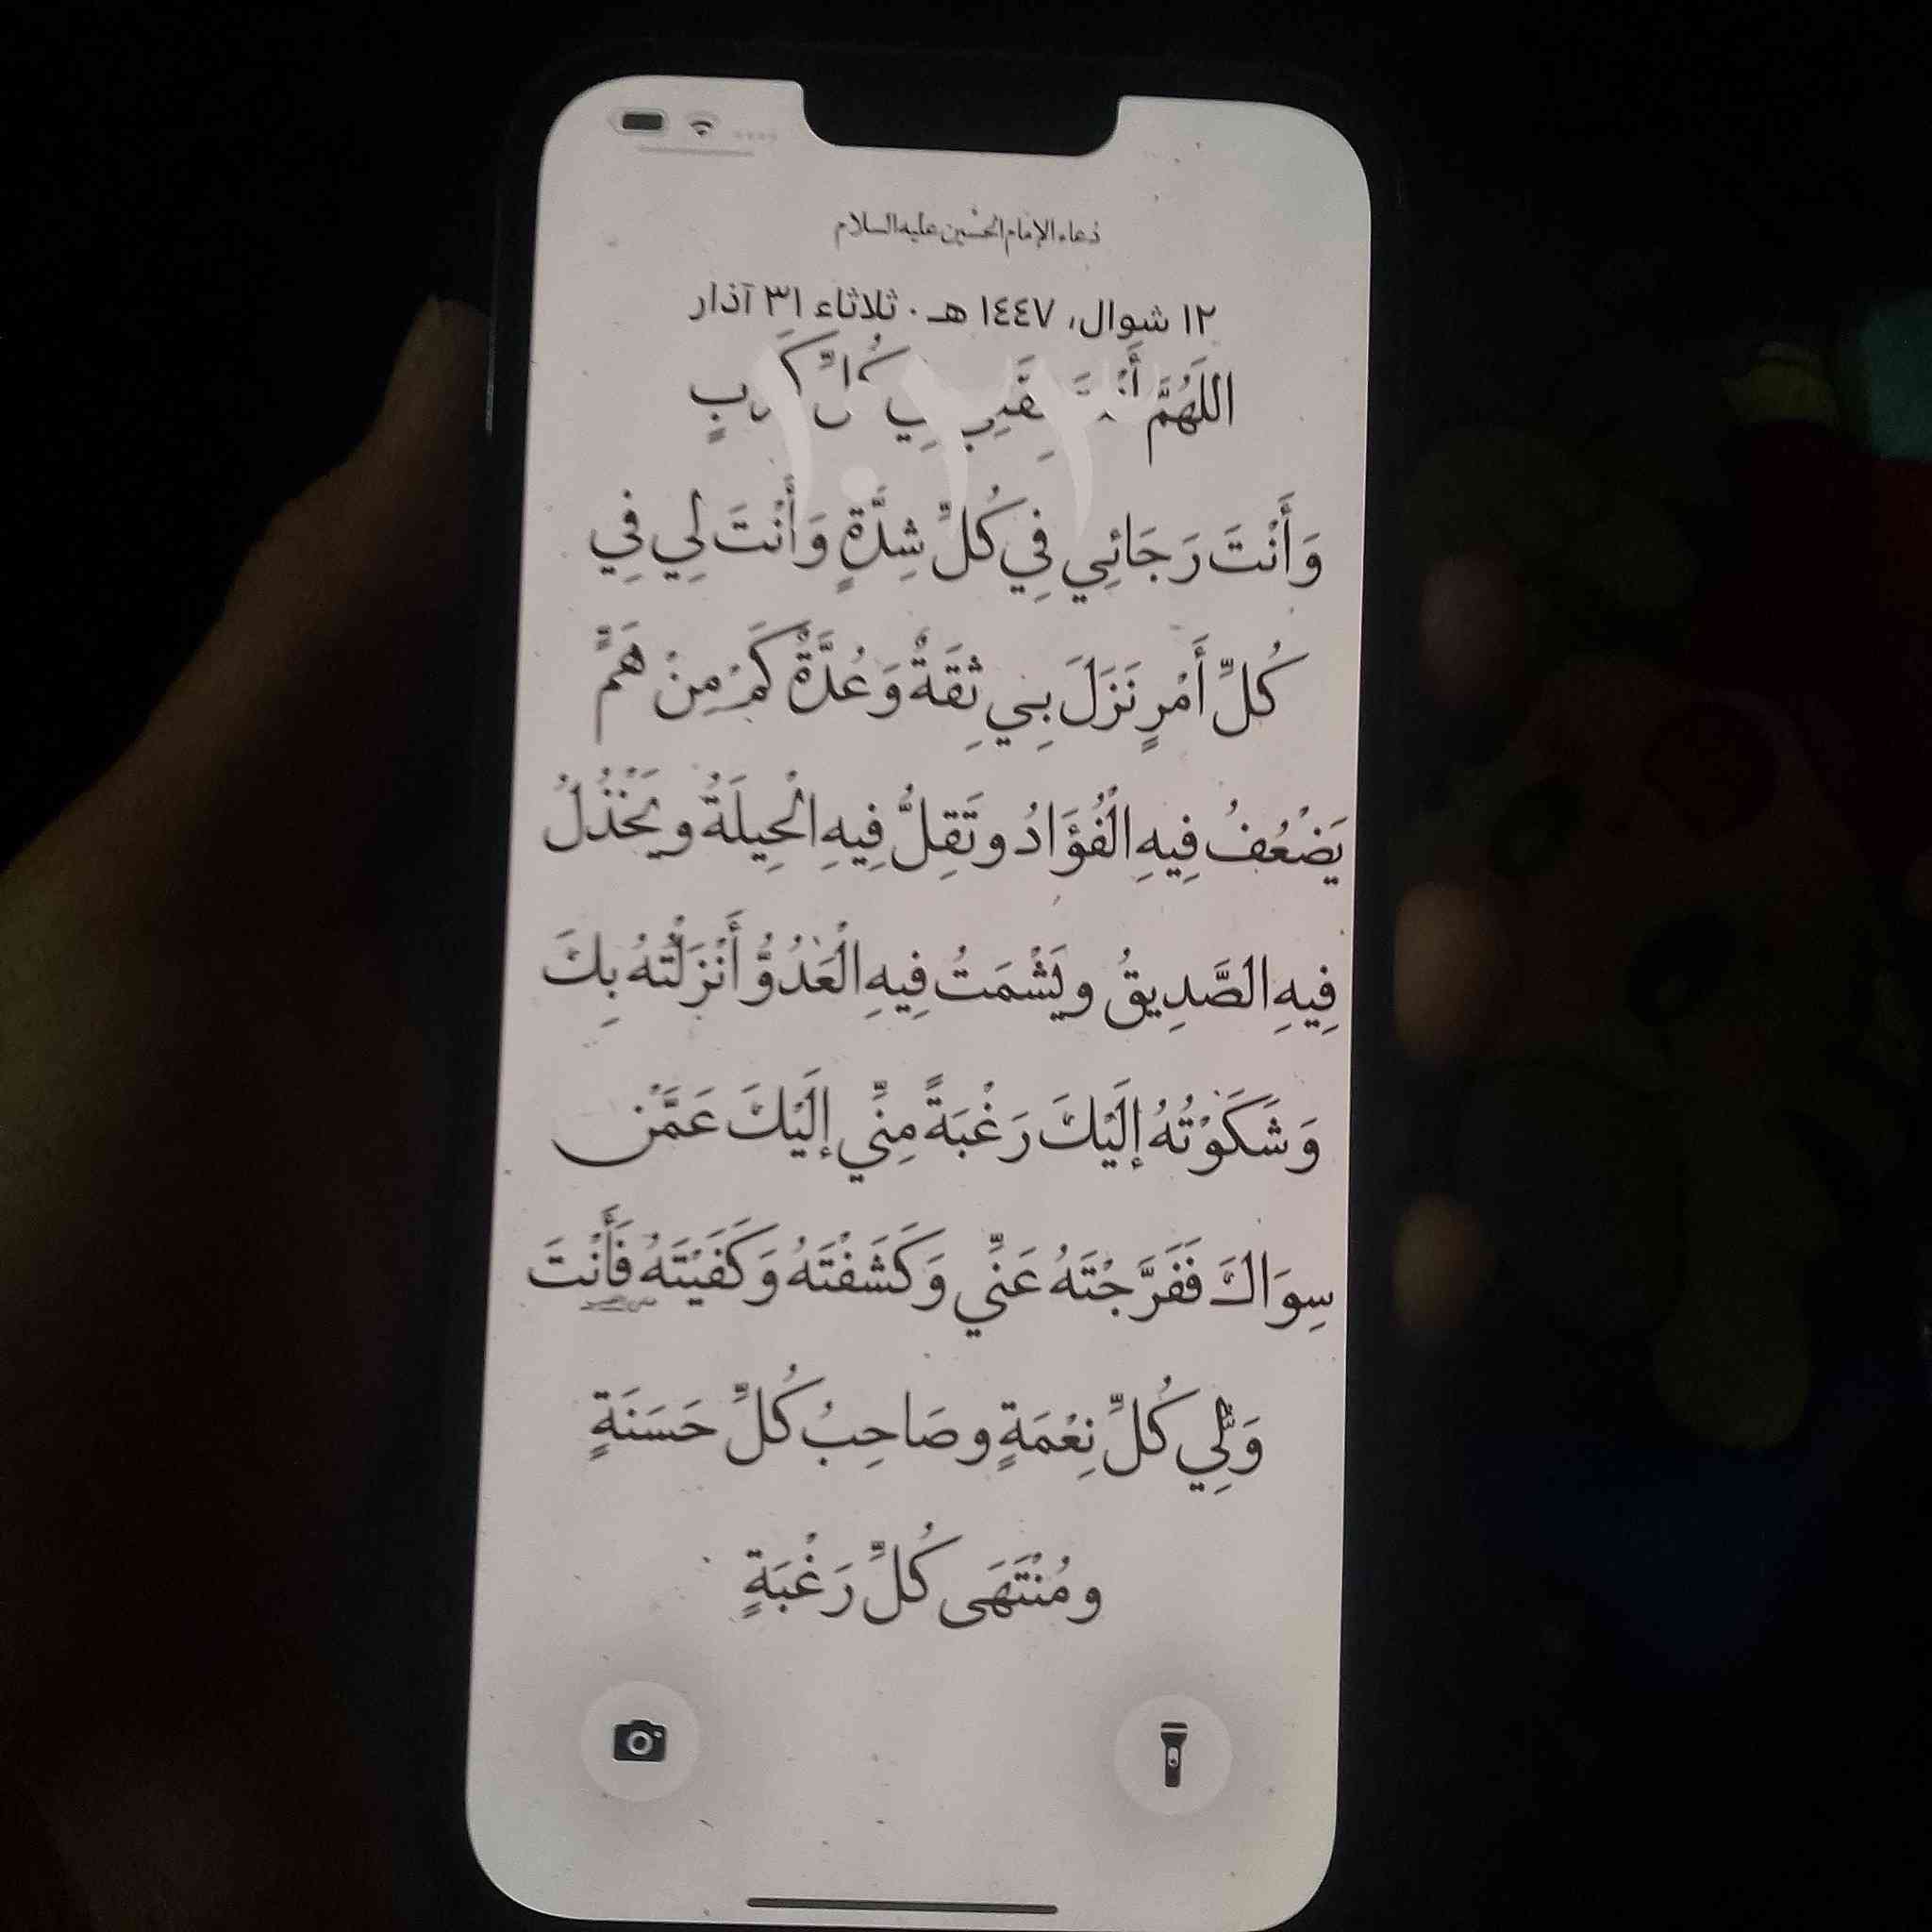 دعاء الإمام الحسين عليه السلام
١٢ شوال، ١٤٤٧ هـ · ثلاثاء ٣١ آذار
اللَهُمَّ أَنْتَ كُلِّ كَربٍ
١٠:٢٣
وَأَنْتَ رَجَائِي فِي كُلِّ شِدَّةٍ وَأَنْتَ لِي فِي
كُلِّ أَمْرٍ نَزَلَ بِي ثِقَةٌ وَعُدَّةٌ كَمْ مِنْ هَمٍّ
يَضْعُفُ فِيهِ الْفُؤَادُ وتَقِلُّ فِيهِ الْحِيلَةُ ويَخْذُلُ
فِيهِ الصَّدِيقُ ويَشْمَتُ فِيهِ الْعَدُوُّ أَنْزَلْتُهُ بِكَ
وَشَكَوْتُهُ إلَيْكَ رَغْبَةً مِنِّي إلَيْكَ عَمَّنْ
سِوَاكَ فَفَرَّجْتَهُ عَنِّي وَكَشَفْتَهُ وَكَفَيْتَهُ فَأَنْتَ
وَلِّي كُلِّ نِعْمَةٍ وصَاحِبُ كُلِّ حَسَنَةٍ
ومُنْتَهَى كُلِّ رَغْبَةٍ